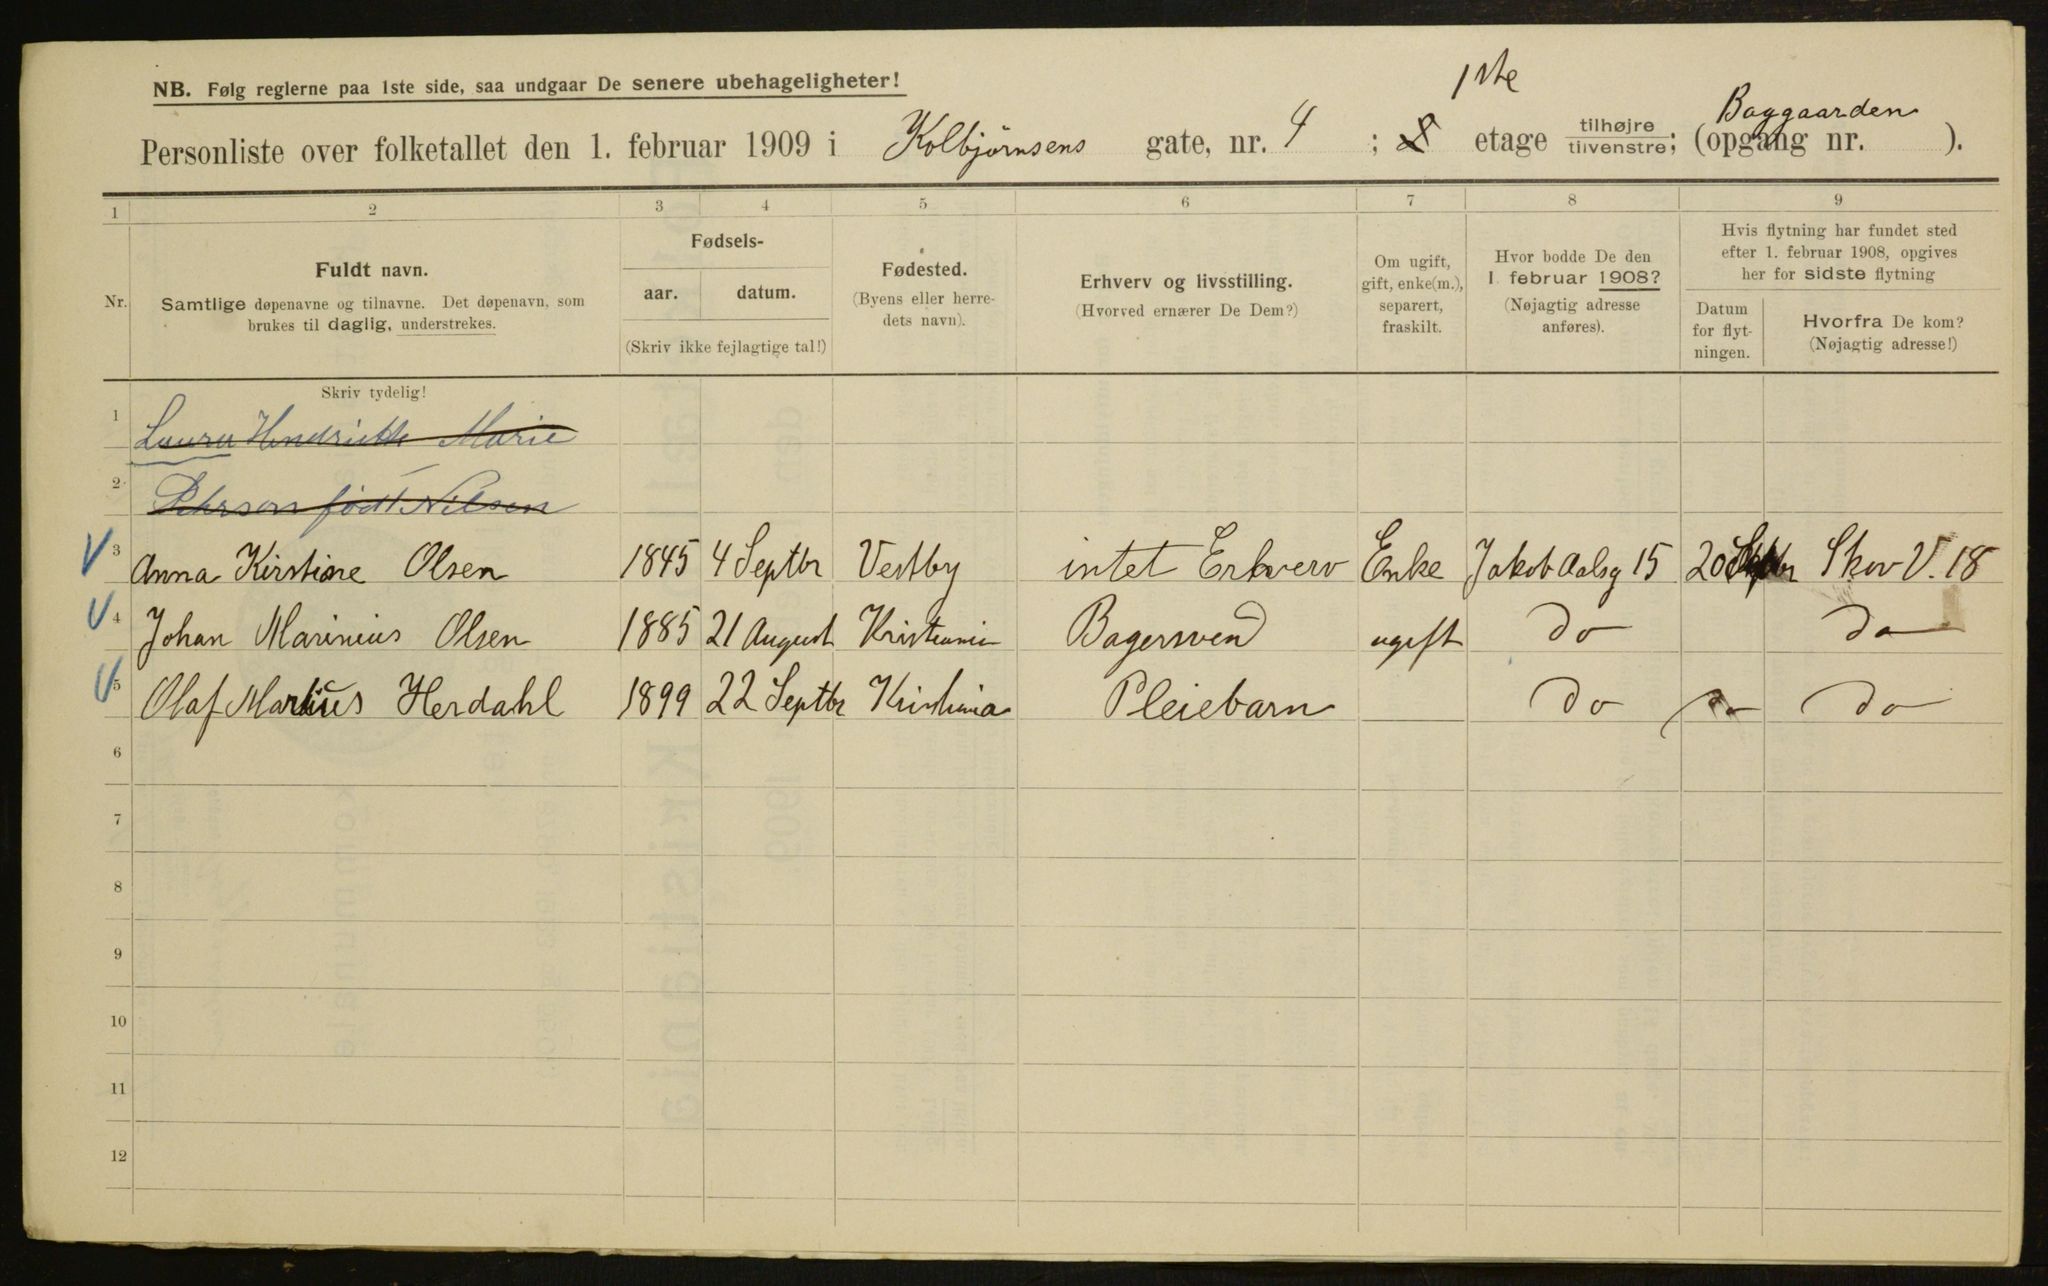 NB. Følg reglerne paa 1ste side, saa undgaar De senere ubehageligheter!
1ste
Baggaarden
Personliste over folketallet den 1. februar 1909 i Kolbjørnsens gate, nr. 4 ; etage tilhøjre tilvenstre; (opgang nr. ).
1 2 3 4 5 6 7 8 9
Nr.
Fuldt navn.
Samtlige døpenavne og tilnavne. Det døpenavn, som
brukes til daglig, understrekes.
Fødsels-
aar. datum.
(Skriv ikke fejlagtige tal!)
Fødested.
(Byens eller herre-
dets navn).
Erhverv og livsstilling.
(Hvorved ernærer De Dem?)
Om ugift,
gift, enke(m.),
separert,
fraskilt.
Hvor bodde De den
1. februar 1908?
(Nøjagtig adresse
anføres).
Hvis flytning har fundet sted
efter 1. februar 1908, opgives
her for sidste flytning
Datum
for flyt-
ningen.
Hvorfra De kom?
(Nøjagtig adresse!)
Skriv tydelig!
1 Laura Henriette Marie
2 født Nilsen
3 Anna Kirstine Olsen 1845 4 Septbr Vestby intet Erhverv Enke Jakob Aalsg 15 20 Septbr Skov V. 18
4 Johan Marinius Olsen 1885 21 August Kristiania Bagersvend ugift do do
5 Olaf Marius Herdahl 1899 22 Septbr Kristiania Pleiebarn do do do
6
7
8
9
10
11
12